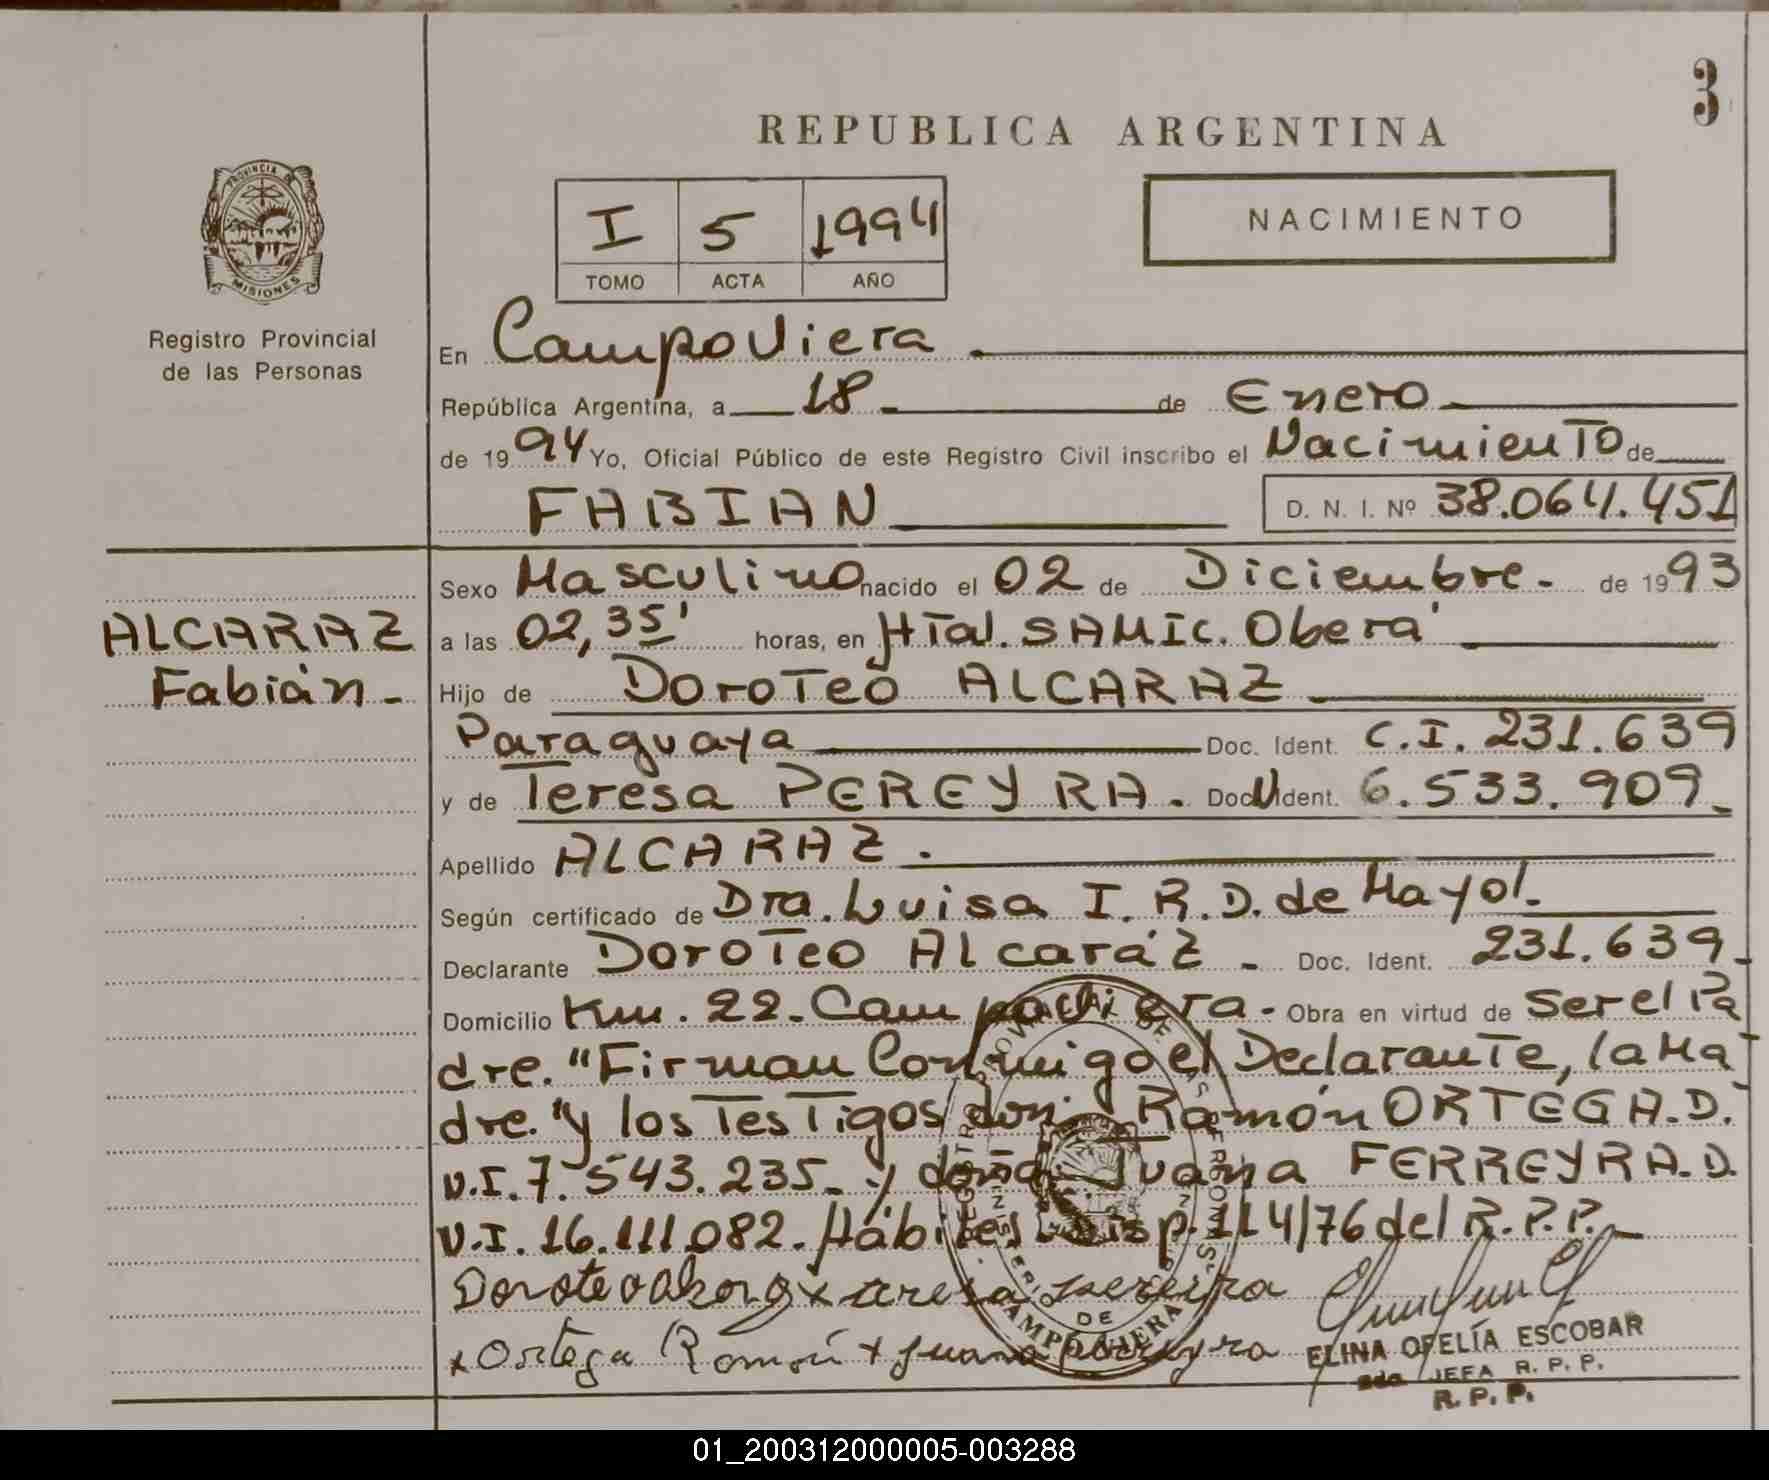 3
REPUBLICA ARGENTINA
NACIMIENTO
I 5 1994
TOMO ACTA AÑO
PROVINCIA DE MISIONES
Registro Provincial
de las Personas
En Campo Viera
República Argentina, a 18 de Enero
de 1994 Yo, Oficial Público de este Registro Civil inscribo el Nacimiento de
FABIAN D. N. I. Nº 38.064.451
ALCARAZ
Fabián
Sexo Masculino nacido el 02 de Diciembre de 1993
a las 02,35' horas, en HTal. SAMIC. Oberá
Hijo de Doroteo ALCARAZ
Paraguaya Doc. Ident. C.I. 231.639
y de Teresa PEREYRA. Doc. U Ident. 6.533.909
Apellido ALCARAZ.
Según certificado de Dra. Luisa I. R. D. de Mayol.
Declarante Doroteo Alcaráz Doc. Ident. 231.639
Domicilio Km. 22. Campo Viera. Obra en virtud de ser el Pa
dre. "Firman Conmigo el Declarante, la Ma
dre." y los Testigos don: Ramón ORTEGA. D.
U.I. 7.543.235 y doña: Juana FERREYRA. D.
U.I. 16.111.082. Hábiles Disp. 114/76 del R.P.P.
Doroteo x teresa pereira
x Ortega Ramón x Juana
ELINA OFELÍA ESCOBAR
JEFA R. P. P.
R. P. P.
DE
CAMPO VIERA
01_200312000005-003288